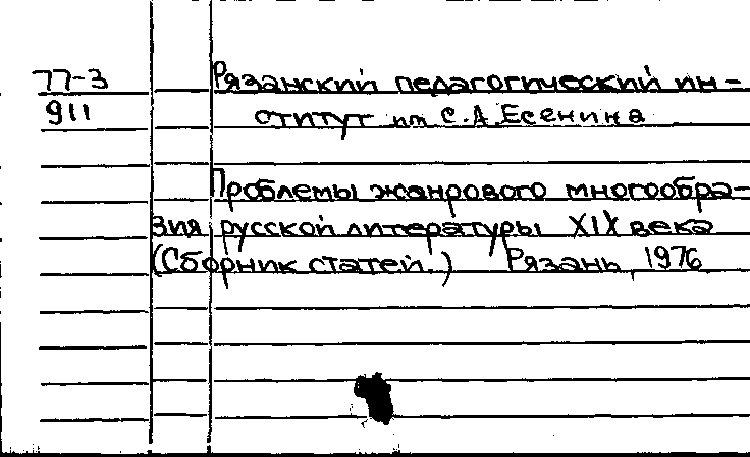 77-3
911
Рязанский педагогический ин-
ститут им С.А.Есенина
Проблемы жанрового многообра-
зия русской литературы XIX века
(Сборник статей.) Рязань, 1976